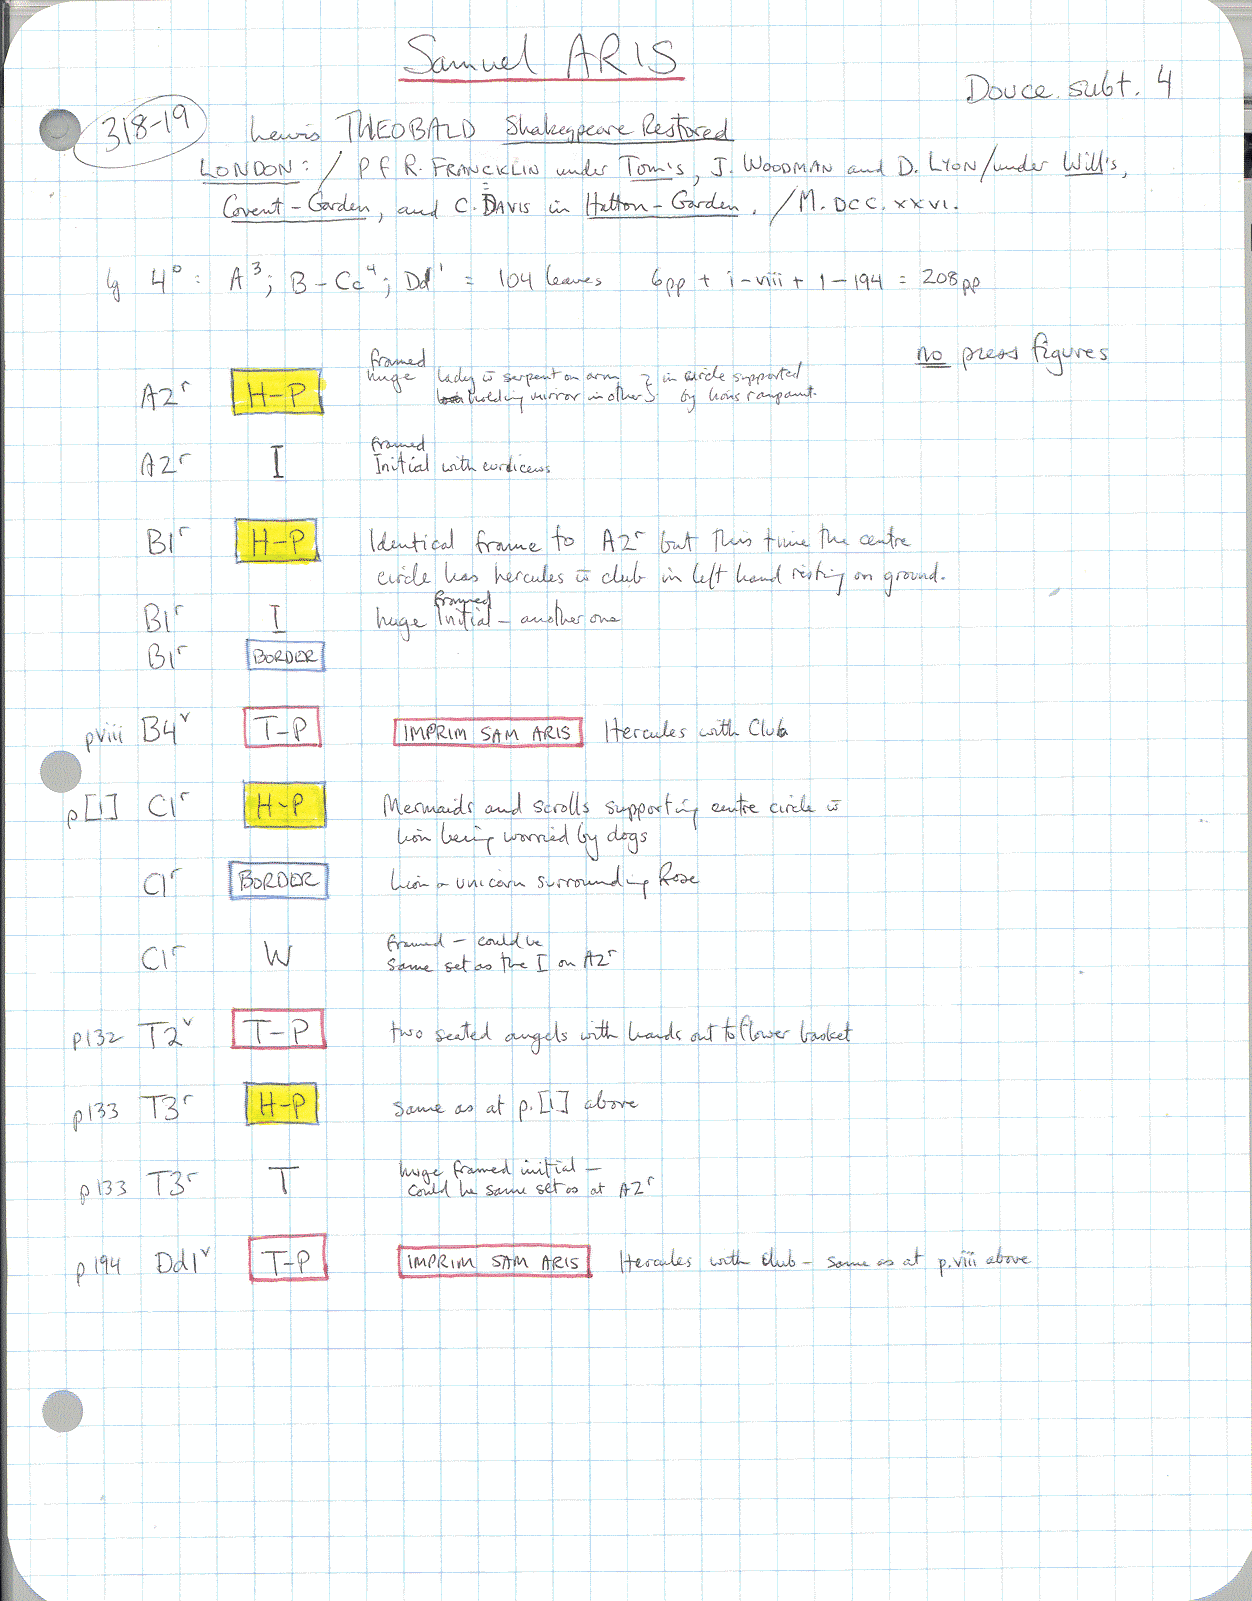 Samuel ARIS
Douce. subt. 4
318-19
Lewis THEOBALD Shakespeare Restored
LONDON: / P f R. FRANCKLIN under Tom's, J. WOODMAN and D. LYON / under Will's,
Covent-Garden, and C. DAVIS in Hatton-Garden. / M.DCC.XXVI.
lg 4° : A³; B - Cc⁴; Dd¹ = 104 leaves 6pp + i-viii + 1-194 = 208pp
no press figures
A2ʳ H-P framed huge lady w̄ serpent on arm } in circle supported
holding mirror in other } by lions rampant.
framed
A2ʳ I Initial with
B1ʳ H-P Identical frame to A2ʳ but this time the centre
circle has hercules w̄ club in left hand resting on ground.
B1ʳ I huge framed Initial - another one
B1ʳ BORDER
pviii B4ᵛ T-P IMPRIM SAM ARIS Hercules with Club
p[1] C1ʳ H-P Mermaids and scrolls supporting centre circle w̄
lion being worried by dogs
C1ʳ BORDER Lion & unicorn surrounding Rose
C1ʳ W framed - could be
same set as the I on A2ʳ
p132 T2ᵛ T-P two seated angels with hands out to flower basket
p133 T3ʳ H-P same as at p.[1] above
p133 T3ʳ T huge framed initial -
could be same set as at A2ʳ
p194 Dd1ᵛ T-P IMPRIM SAM ARIS Hercules with club - same as at p.viii above